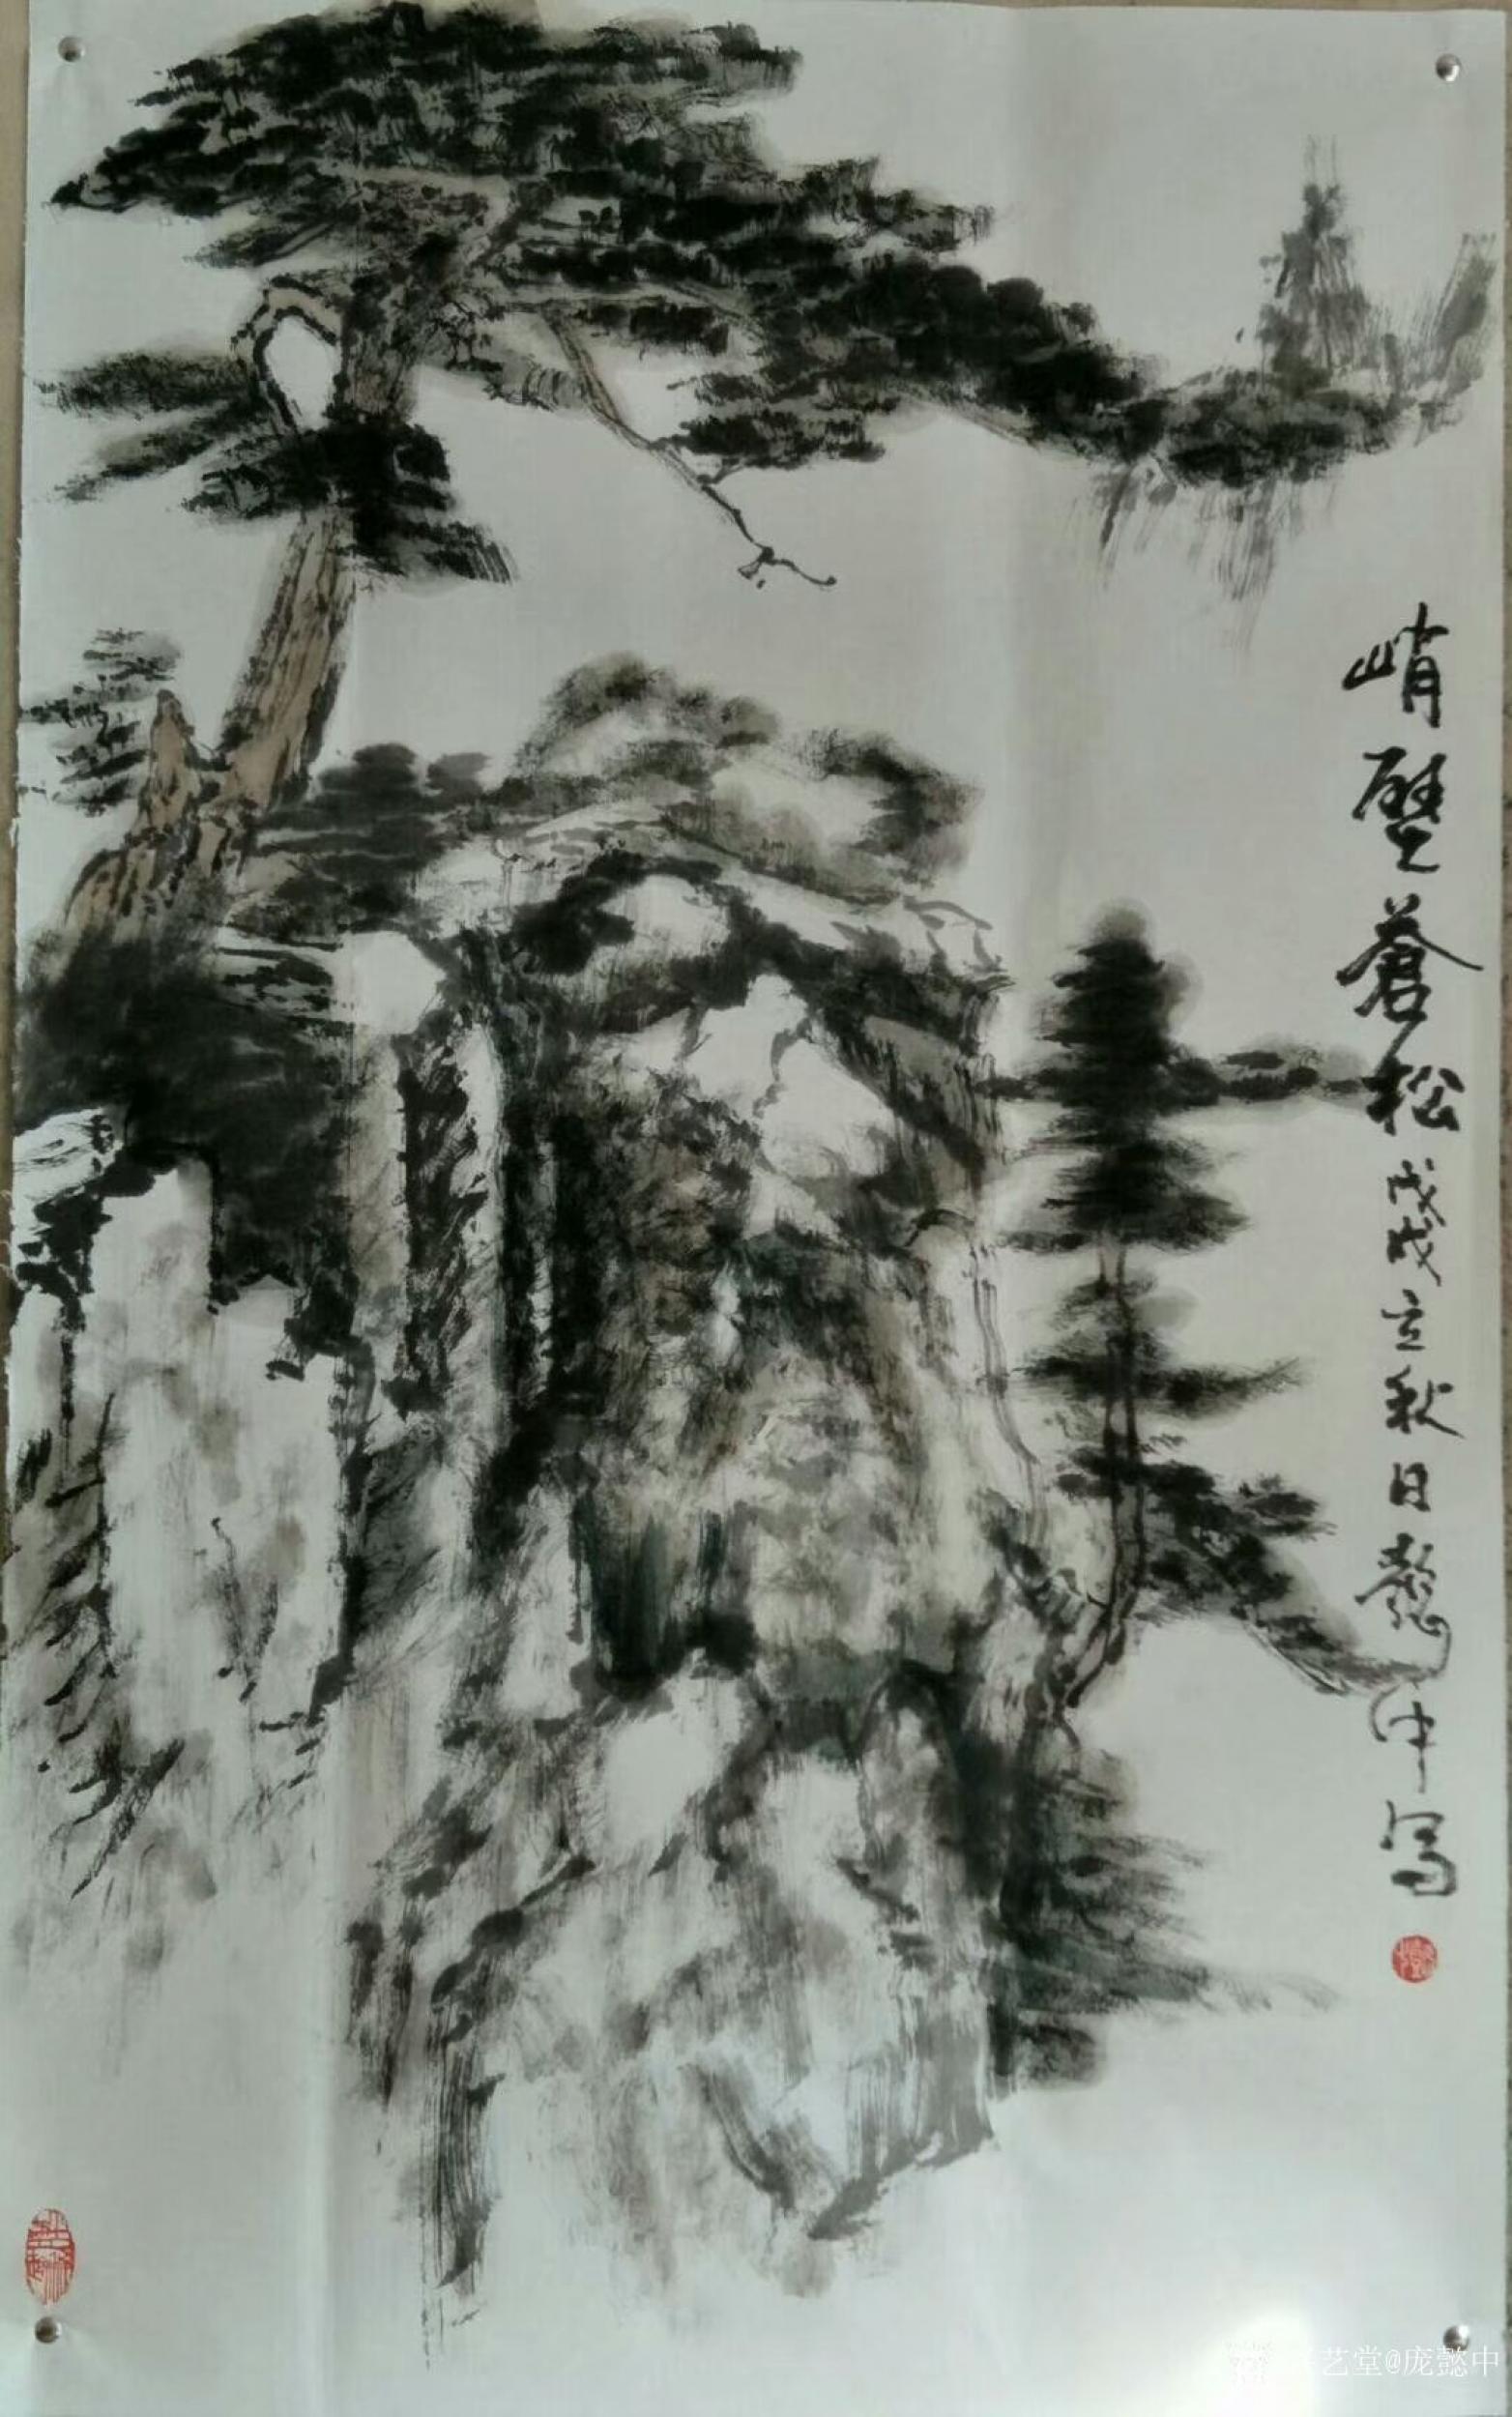 峭壁蒼松 戊戌立秋日懿中写
艺堂@庞懿中